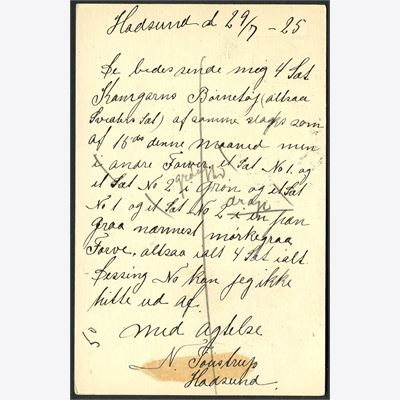 Hadsund d 29/7 - 25
De bedes sende mig 4 Sæt
Kamgarns Børnetøj (altsaa
Sweaters Sæt) af samme slags som
af 16 ds denne maaned men
i andre Farver, et Sæt No 1. og
et Sæt No 2 i Grøn og et Sæt
No 1 og et Sæt No 2 i en pæn
graa nærmest mørkegraa
Farve, altsaa ialt 4 Sæt ialt
Dessing No kan jeg ikke
hitte ud af.
med agtelse
N. Toustrup
Hadsund.
50